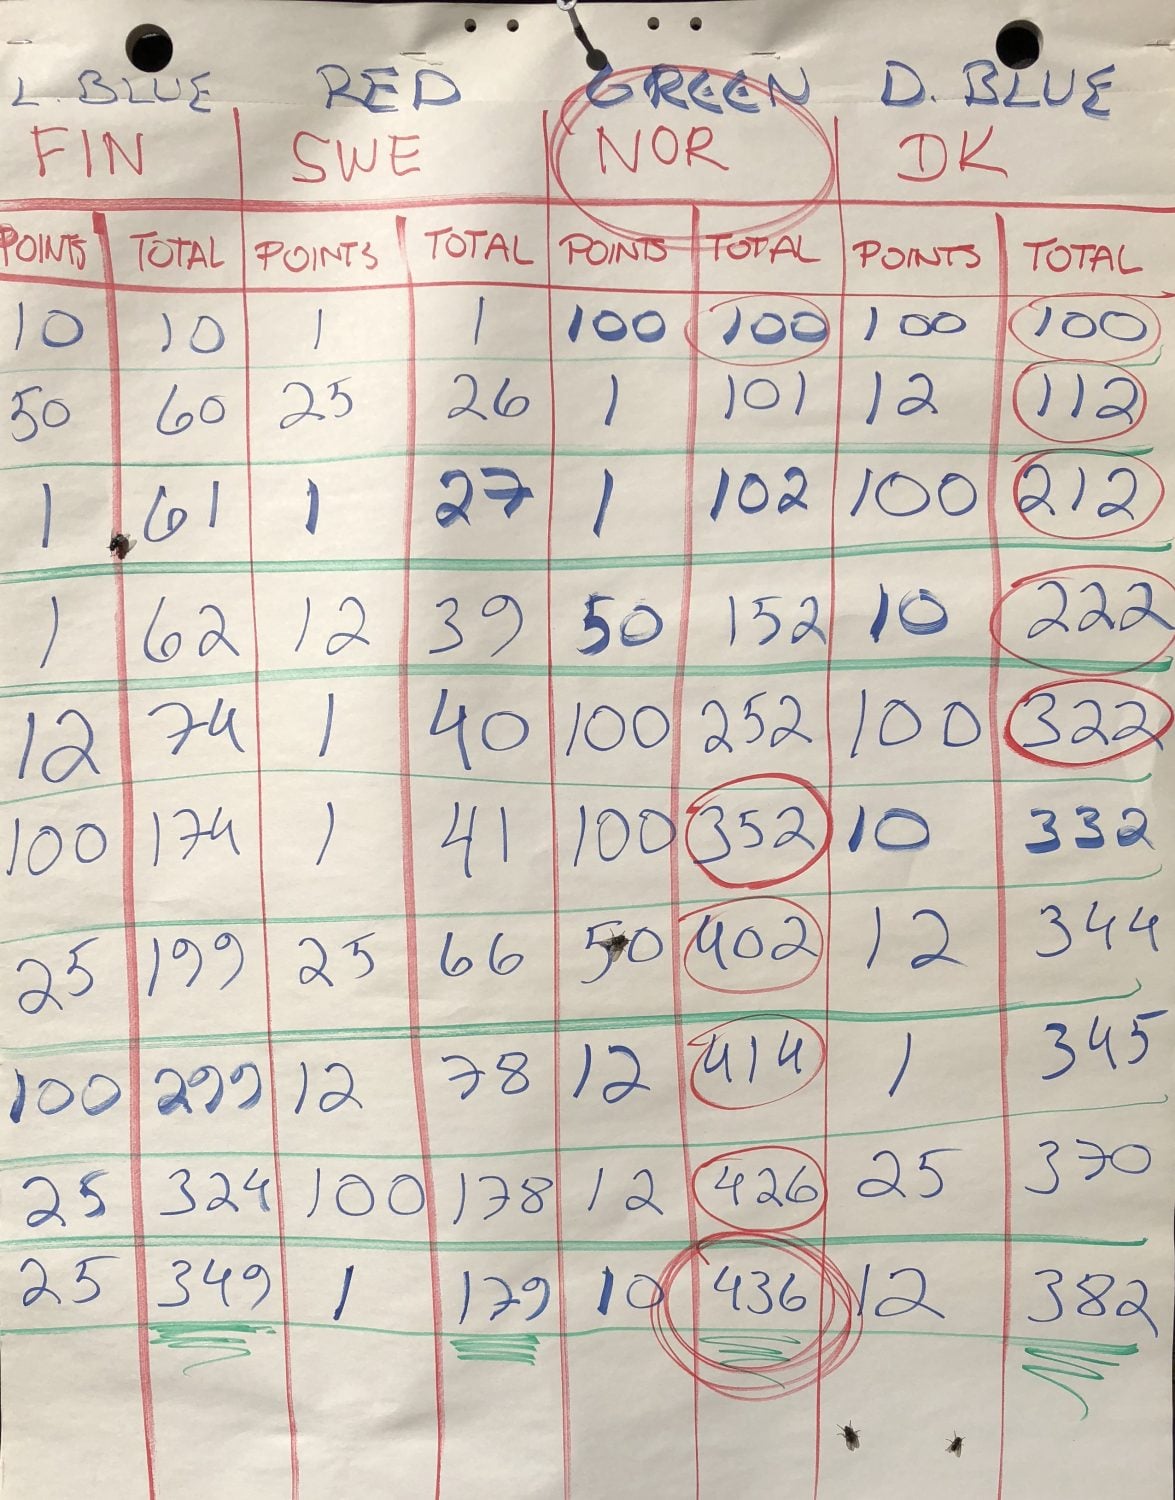 L. BLUE RED GREEN D. BLUE
FIN SWE NOR DK
POINTS TOTAL POINTS TOTAL POINTS TOTAL POINTS TOTAL
10 10 1 1 100 100 100 100
50 60 25 26 1 101 12 112
1 61 1 27 1 102 100 212
1 62 12 39 50 152 10 222
12 74 1 40 100 252 100 322
100 174 1 41 100 352 10 332
25 199 25 66 50 402 12 344
100 299 12 78 12 414 1 345
25 324 100 178 12 426 25 370
25 349 1 179 10 436 12 382